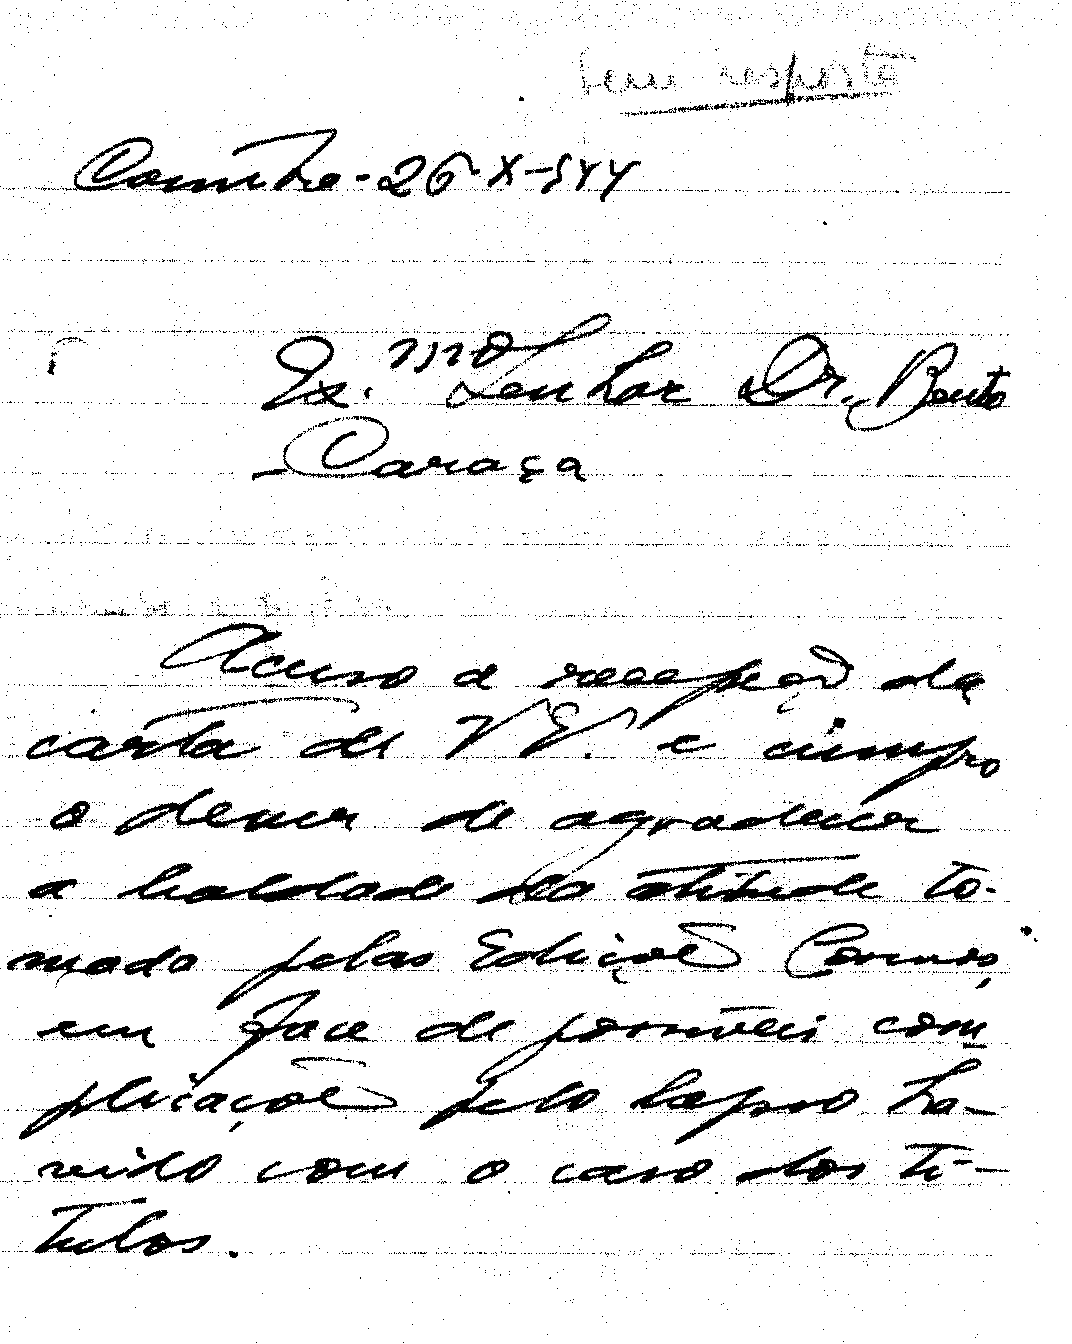 Sem resposta
Coimbra - 26-X-944
Ex.mo Senhor Dr. Bento
Caraça
Acuso a recepção da
carta de V. E. e cumpro
o dever de agradecer
a lealdade da atitude to-
mada pelas Edições Cosmos,
em face de possíveis com
plicações pelo lapso ha-
vido com o caso dos tí-
tulos.